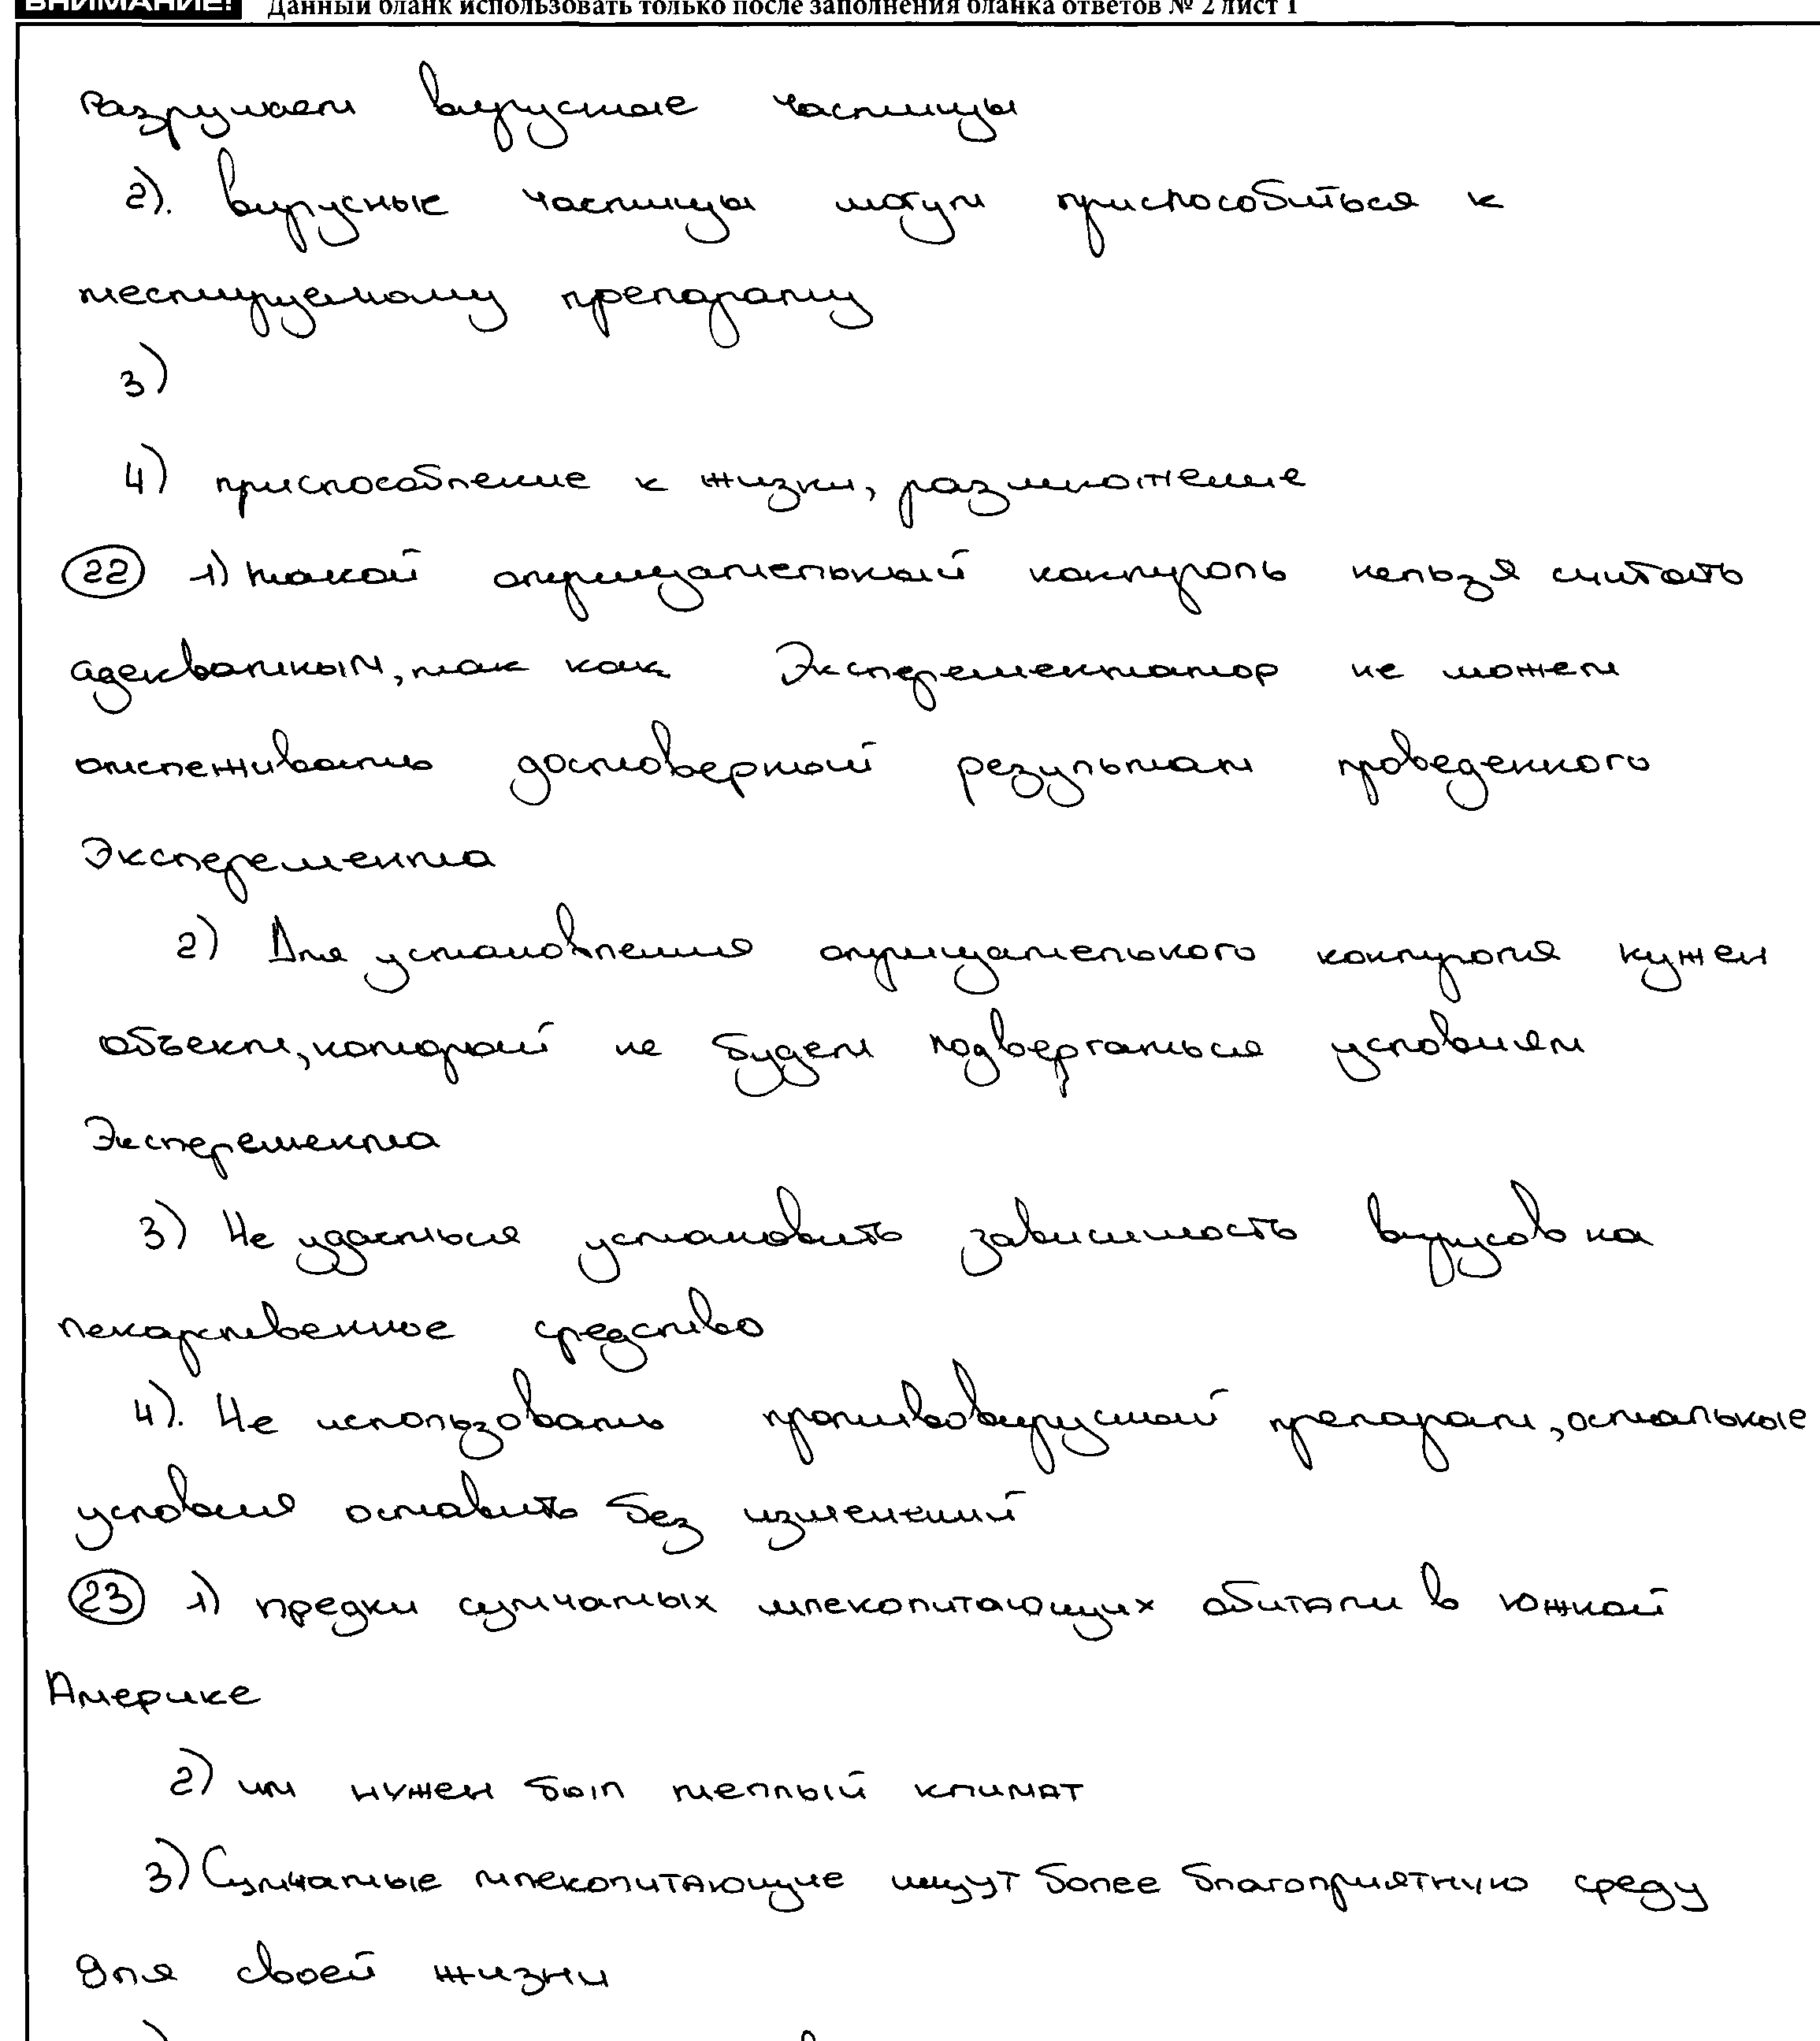 ВНИМАНИЕ! Данный бланк использовать только после заполнения бланка ответов № 2 лист 1
разрушает вирусные частицы
2). вирусные частицы могут приспособиться к
тестируемому препарату
3)
4) приспособление к жизни, размножение
22 1) такой отрицательный контроль нельзя считать
адекватным, так как Эксперементатор не может
отслеживать достоверный результат проведенного
Эксперемента
2) Для установления отрицательного контроля нужен
объект, который не будет подвергаться условиям
Эксперемента
3) Не удасться установить зависимость вирусов на
лекарственное средство
4). Не использовать противовирусный препарат, остальные
условия оставить без изменений
23 1) предки сумчатых млекопитающих обитали в южной
Америке
2) им нужен был теплый климат
3) Сумчатые млекопитающие ищут более благоприятную среду
для своей жизни